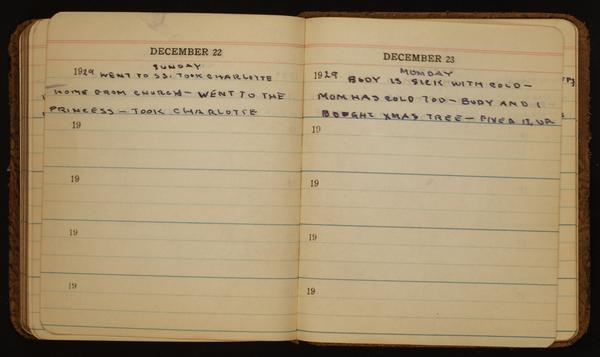 DECEMBER 22
SUNDAY
1929 WENT TO SS. TOOK CHARLOTTE
HOME FROM CHURCH – WENT TO THE
PRINCESS – TOOK CHARLOTTE
19
19
19
19
DECEMBER 23
MONDAY
1929 BUDY IS SICK WITH COLD –
MOM HAS COLD TOO – BUDY AND I
BOUGHT XMAS TREE – FIXED IT UP
19
19
19
19